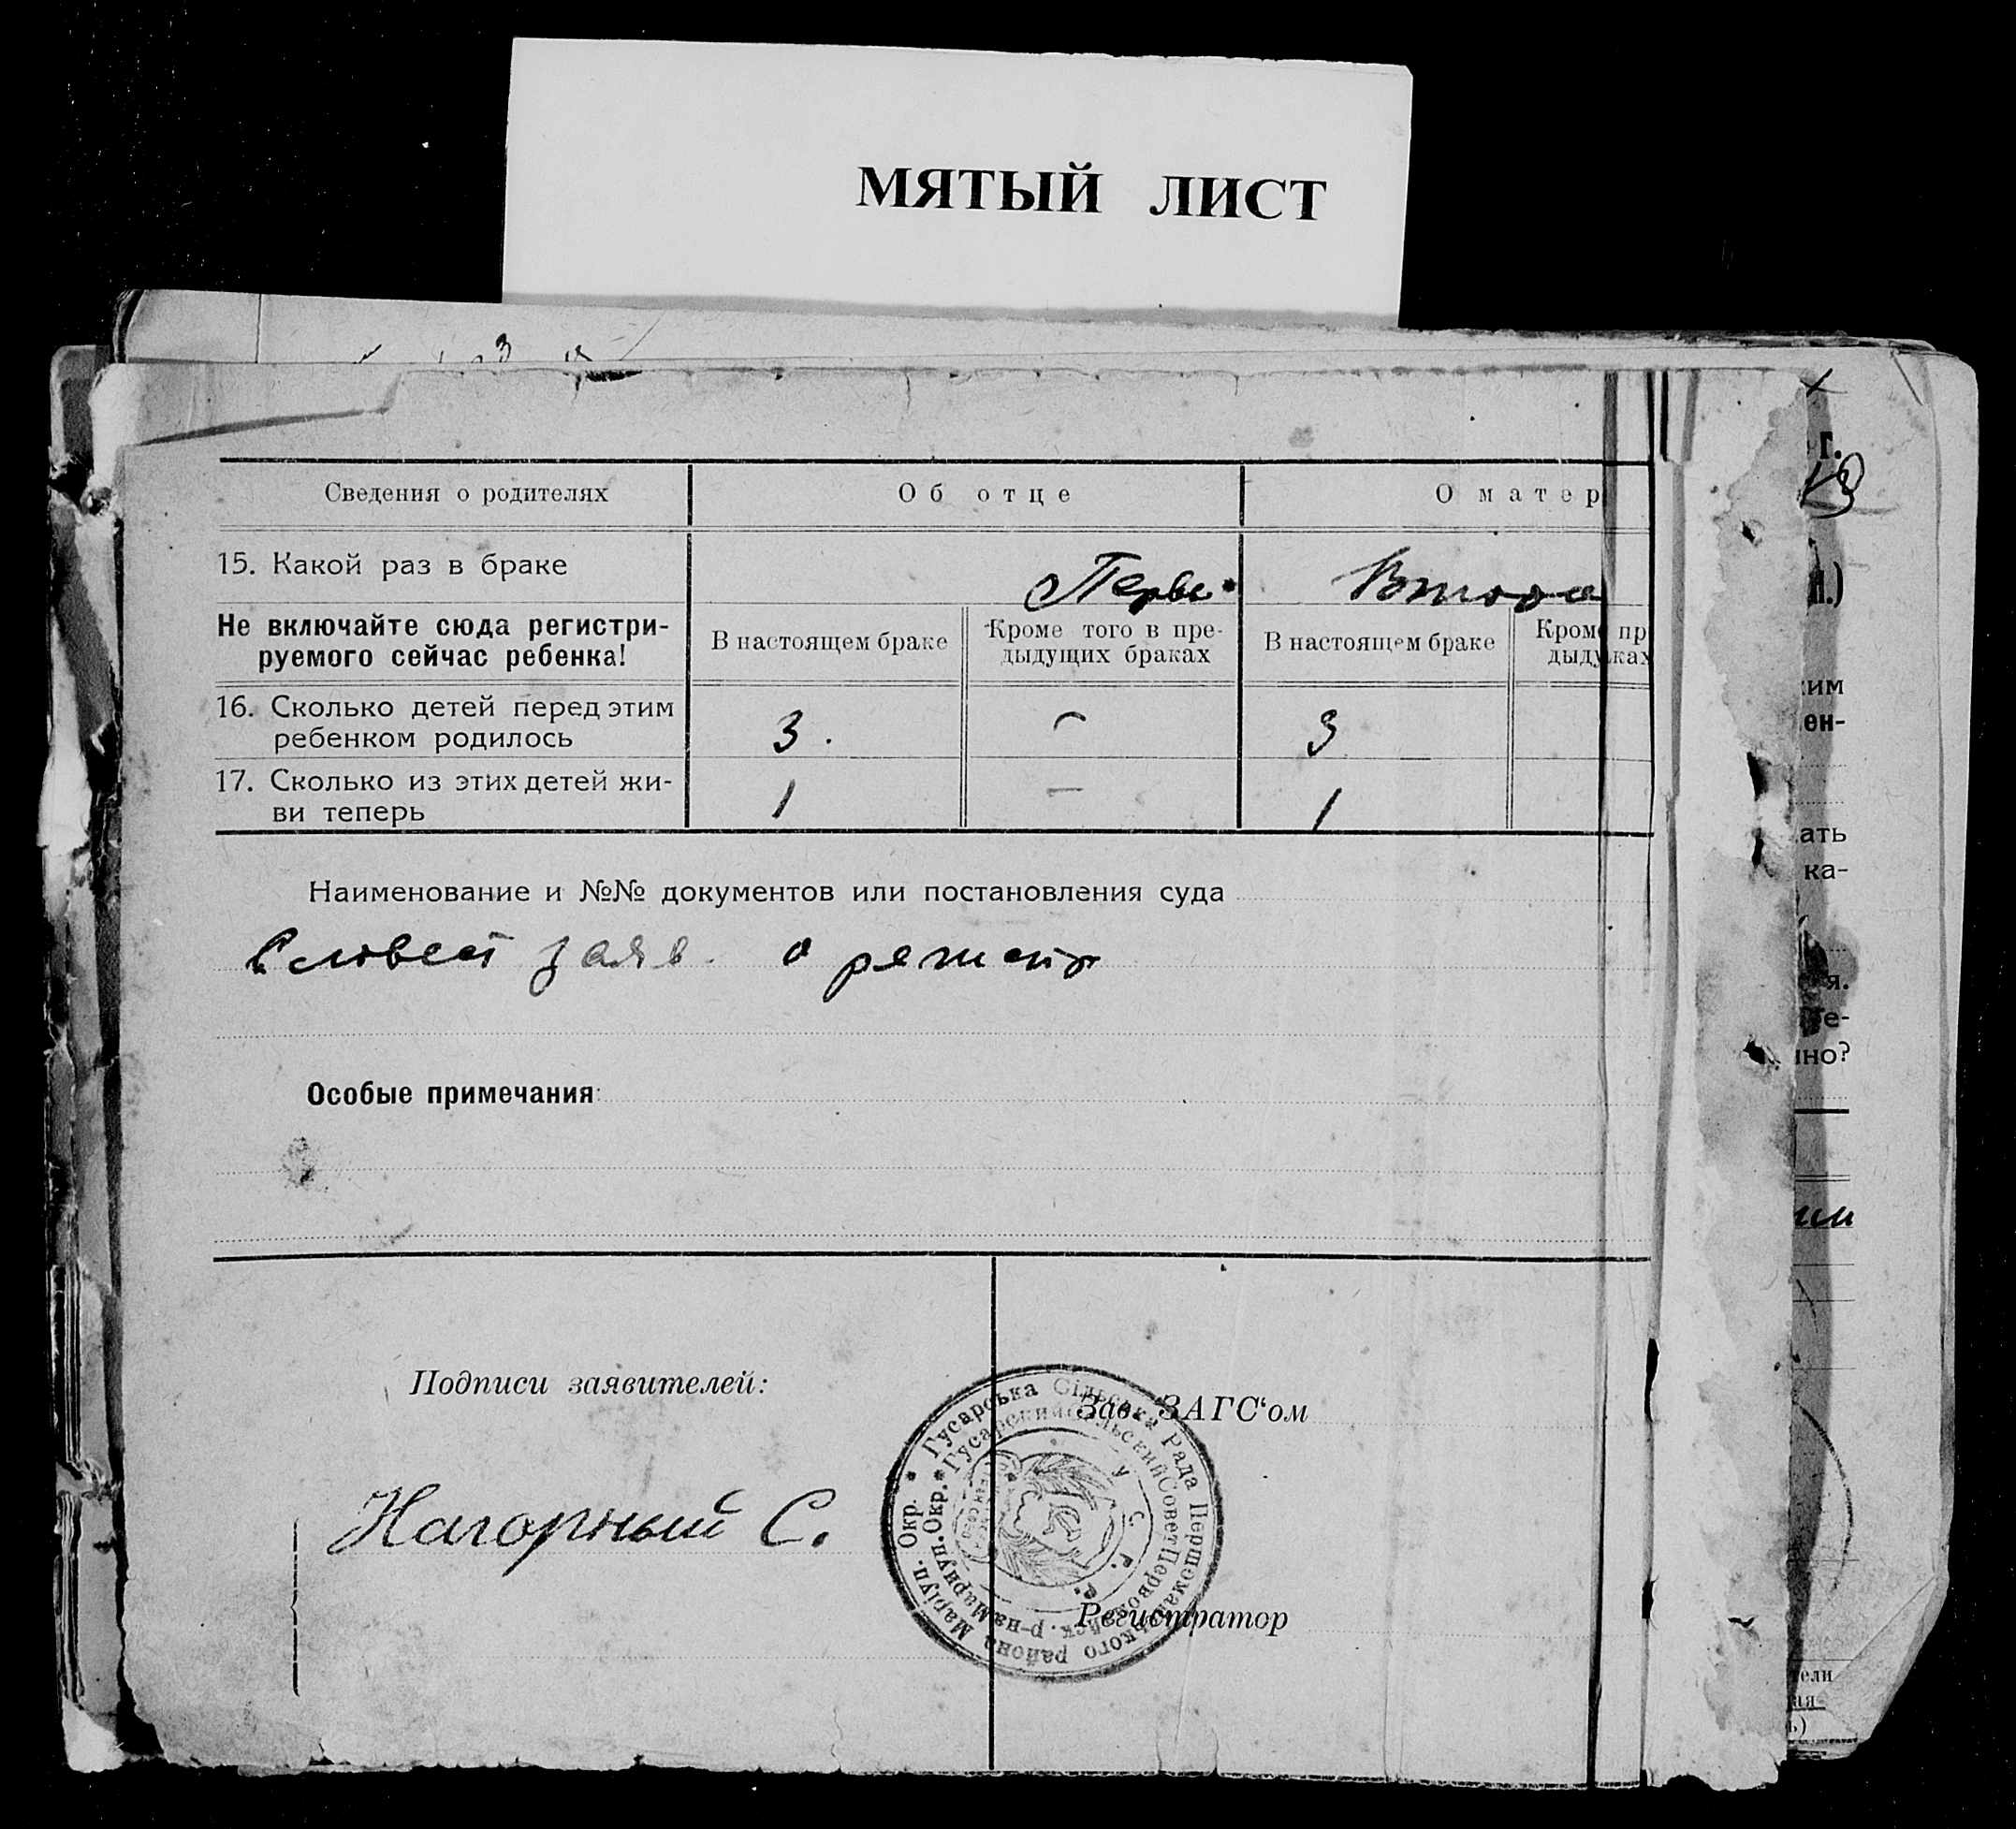 МЯТЫЙ ЛИСТ
Сведения о родителях
Об отце
О матер
15. Какой раз в браке
Перви
Втора
Не включайте сюда регистри-
руемого сейчас ребенка!
В настоящем браке
Кроме того в пре-
дыдущих браках
В настоящем браке
Кром пр
дыд ках
16. Сколько детей перед этим
ребенком родилось
3.
-
3
17. Сколько из этих детей жи-
ви теперь
1
-
1
Наименование и №№ документов или постановления суда
Словест заяв. о
Особые примечания:
Подписи заявителей:
Зав. ЗАГС'ом
Нагорный С.
Регистратор
* Гусарська Сільська Рада Першомайського района Маріуп. Окр.
* Гусарский Сельский Совет Первомайск. р-на Мариуп. Окр.
У. С. Р. Р.
г.
.)
ким
ен-
ать
ка-
я.
е-
нно?
ели
ая-
ь)